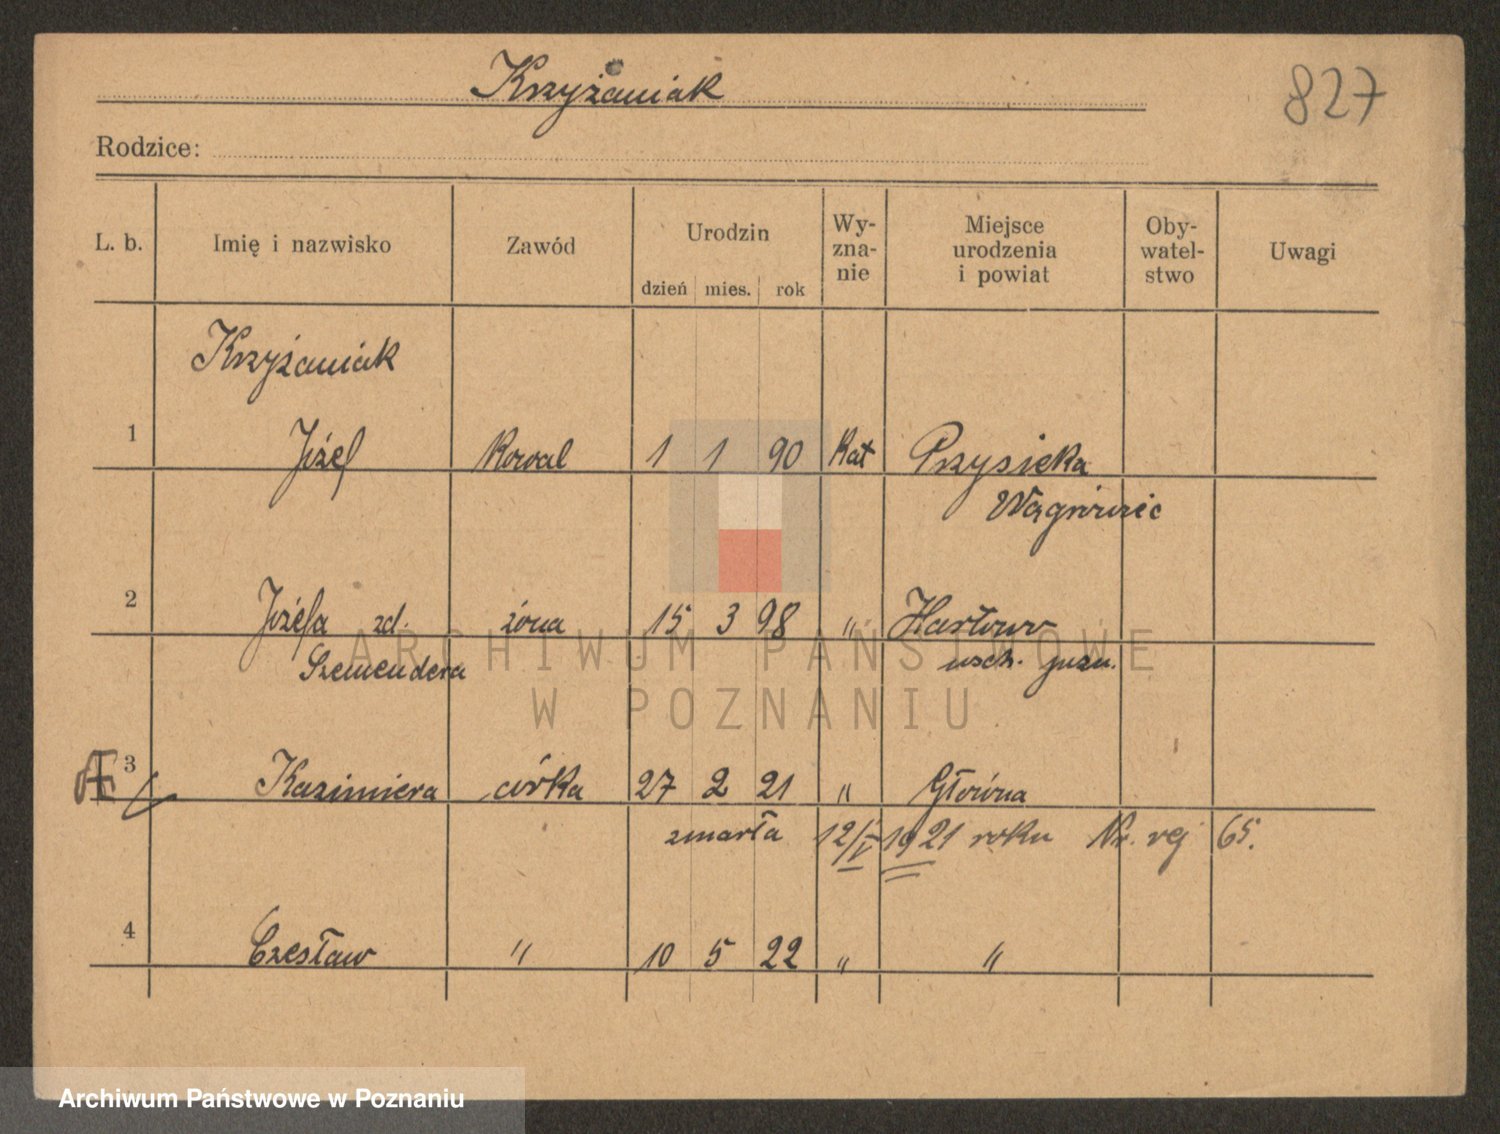 Krzyżaniak
827
Rodzice:
L. b. Imię i nazwisko Zawód Urodzin dzień mies. rok Wy-zna-nie Miejsce urodzenia i powiat Oby-watel-stwo Uwagi
Krzyżaniak
1 Józef Kowal 1 1 90 Kat Przysieka
Wągrówiec
2 Józefa zd. żona 15 3 98 " Harłowo
Szemendera wsch. prsn.
3 Kazimiera córka 27 2 21 " Główna
zmarła 12/V 1921 roku Nr. rej 65.
4 Czesław " 10 5 22 " "
ARCHIWUM PAŃSTWOWE
W POZNANIU
Archiwum Państwowe w Poznaniu